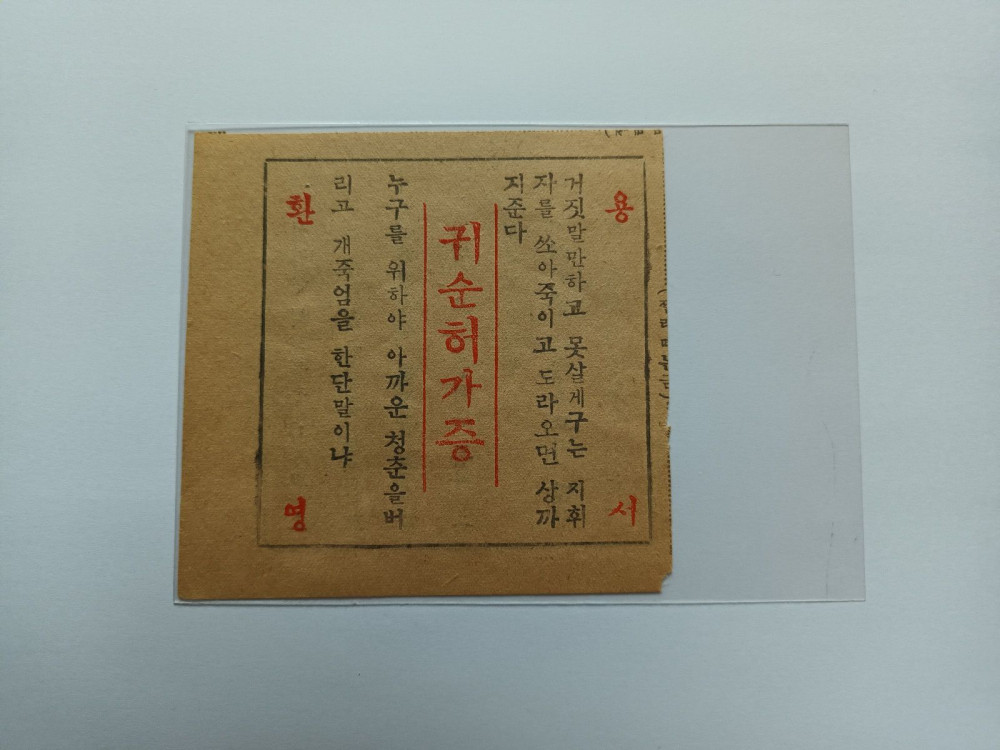 용서
거짓말만하고 못살게구는 지휘
자를 쏘아죽이고 도라오면 상까
지준다
귀순허가증
누구를 위하야 아까운 청춘을버
리고 개죽엄을 한단말이냐
환영